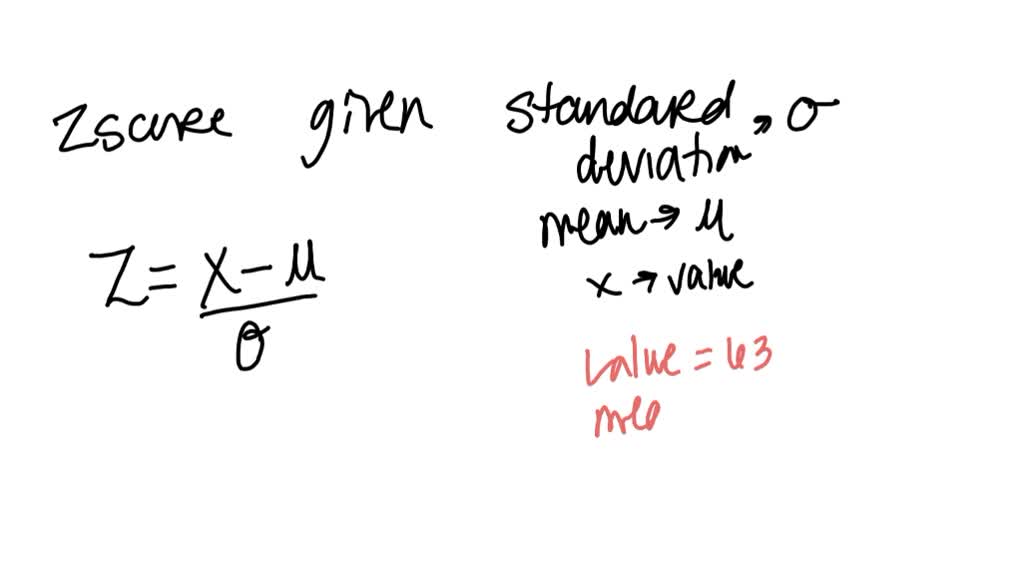 zscore given standard → σ
deviation
mean → μ
x → value
Z = x - μ
σ
value = 63
mea